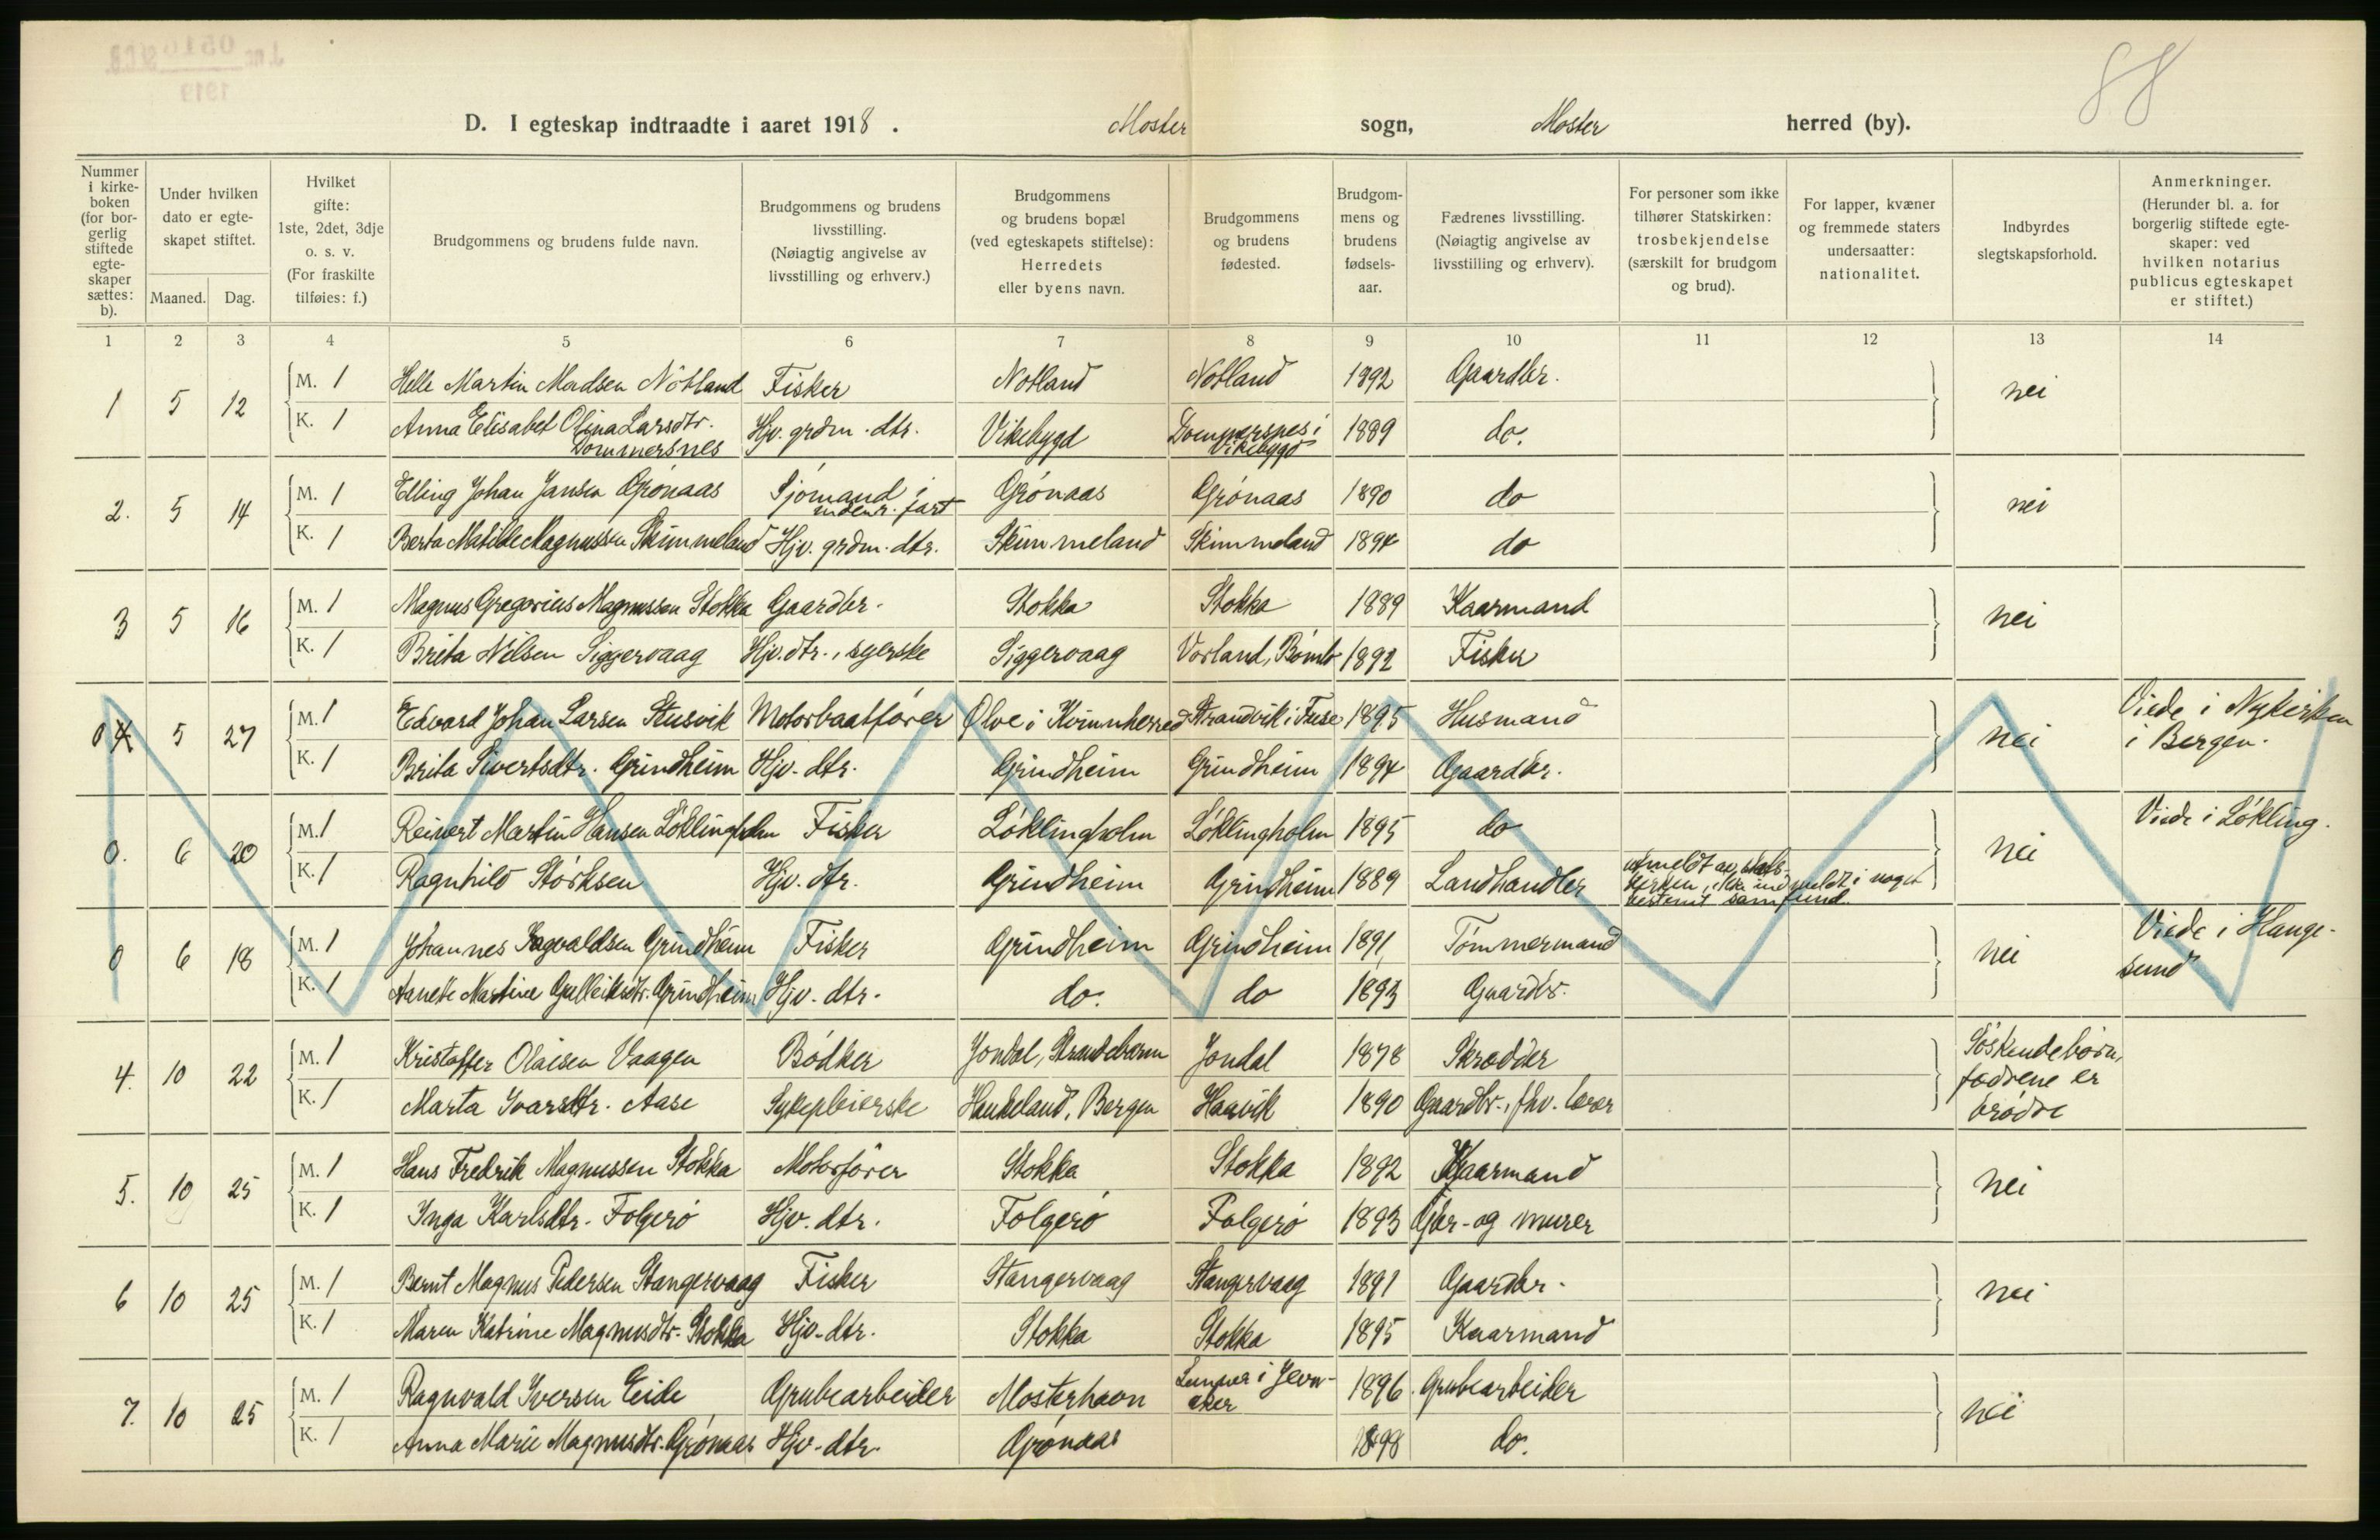 J.nr 0516 S.C.B.
1919
88
D. I egteskap indtraadte i aaret 1918. Moster sogn, Moster herred (by).
Nummer i kirkeboken (for borgerlig stiftede egteskaper sættes: b).
Under hvilken dato er egteskapet stiftet.
Maaned. Dag.
Hvilket gifte: 1ste, 2det, 3dje o. s. v. (For fraskilte tilføies: f.)
Brudgommens og brudens fulde navn.
Brudgommens og brudens livsstilling. (Nøiagtig angivelse av livsstilling og erhverv.)
Brudgommens og brudens bopæl (ved egteskapets stiftelse): Herredets eller byens navn.
Brudgommens og brudens fødested.
Brudgommens og brudens fødselsaar.
Fædrenes livsstilling. (Nøiagtig angivelse av livsstilling og erhverv).
For personer som ikke tilhører Statskirken: trosbekjendelse (særskilt for brudgom og brud).
For lapper, kvæner og fremmede staters undersaatter: nationalitet.
Indbyrdes slegtskapsforhold.
Anmerkninger. (Herunder bl. a. for borgerlig stiftede egteskaper: ved hvilken notarius publicus egteskapet er stiftet.)
1 2 3 4 5 6 7 8 9 10 11 12 13 14
1 5 12 M. 1 Helle Martin Madsen Nótland Fisker Notland Notland 1892 Gaardbr. nei
K. 1 Anna Elisabet Olina Larsdtr. Dommersnes Hjv. grdm. dtr. Vikebygd Dommersnes i Vikebygd 1889 do.
2. 5 14 M. 1 Elling Johan Jansen Grónaas Sjómand i indenr. fart Grónaas Grónaas 1890 do nei
K. 1 Berta Matilde Magnussen Skimmeland Hjv. grdm. dtr. Skimmeland Skimmeland 1894 do
3 5 16 M. 1 Magnus Gregorius Magnussen Stokka Gaardbr. Stokka Stokka 1889 Kaarmand nei
K. 1 Brita Nilsen Siggervaag Hjv. dtr., syerske Siggervaag Vorland, Bómlo 1892 Fisker
0 4 5 27 M. 1 Edvard Johan Larsen Stusvik Motorbaatfórer Ólve i Kvinnherred Strandvik i Fuse 1895 Husmand nei Viede i Nykirken i Bergen.
K. 1 Brita Sivertsdtr. Grindheim Hjv. dtr. Grindheim Grindheim 1894 Gaardbr.
0. 6 20 M. 1 Reinert Martin Hansen Lóklingholm Fisker Lóklingholm Lóklingholm 1895 do nei Viede i Lókling.
K. 1 Ragnhild Stórksen Hjv. dtr. Grindheim Grindheim 1889 Landhandler utmeldt av statskirken, ikke indmeldt i noget bestemt samfund.
0 6 18 M. 1 Johannes Ragvaldsen Grindheim Fisker Grindheim Grindheim 1891 Tómmermand nei Viede i Haugesund
K. 1 Anette Martine Gulleiksdtr. Grindheim Hjv. dtr. do. do 1893 Gaardbr.
4. 10 22 M. 1 Kristoffer Olaisen Vaagen Bódker Jondal, Strandebarm Jondal 1878 Skrædder Sóskendebórn, fædrene er bródre
K. 1 Marta Ivarsdtr. Aase Sykepleierske Haukeland, Bergen Haavik 1890 Gaardbr., fhv. lærer
5. 10 25 M. 1 Hans Fredrik Magnussen Stokka Motorfórer Stokka Stokka 1892 Kaarmand nei
K. 1 Inga Karlsdtr. Folgeró Hjv. dtr. Folgeró Folgeró 1893 Gbr- og murer
6 10 25 M. 1 Bernt Magnus Pedersen Stangervaag Fisker Stangervaag Stangervaag 1891 Gaardbr. nei
K. 1 Maren Katrine Magnusdtr. Stokka Hjv. dtr. Stokka Stokka 1895 Kaarmand
7. 10 25 M. 1 Ragnvald Iversen Eide Grubearbeider Mosterhavn i Jevnaker 1896 Grubearbeider nei
K. 1 Anna Marie Magnusdtr. Grónaas Hjv. dtr. Grónaas 1898 do.